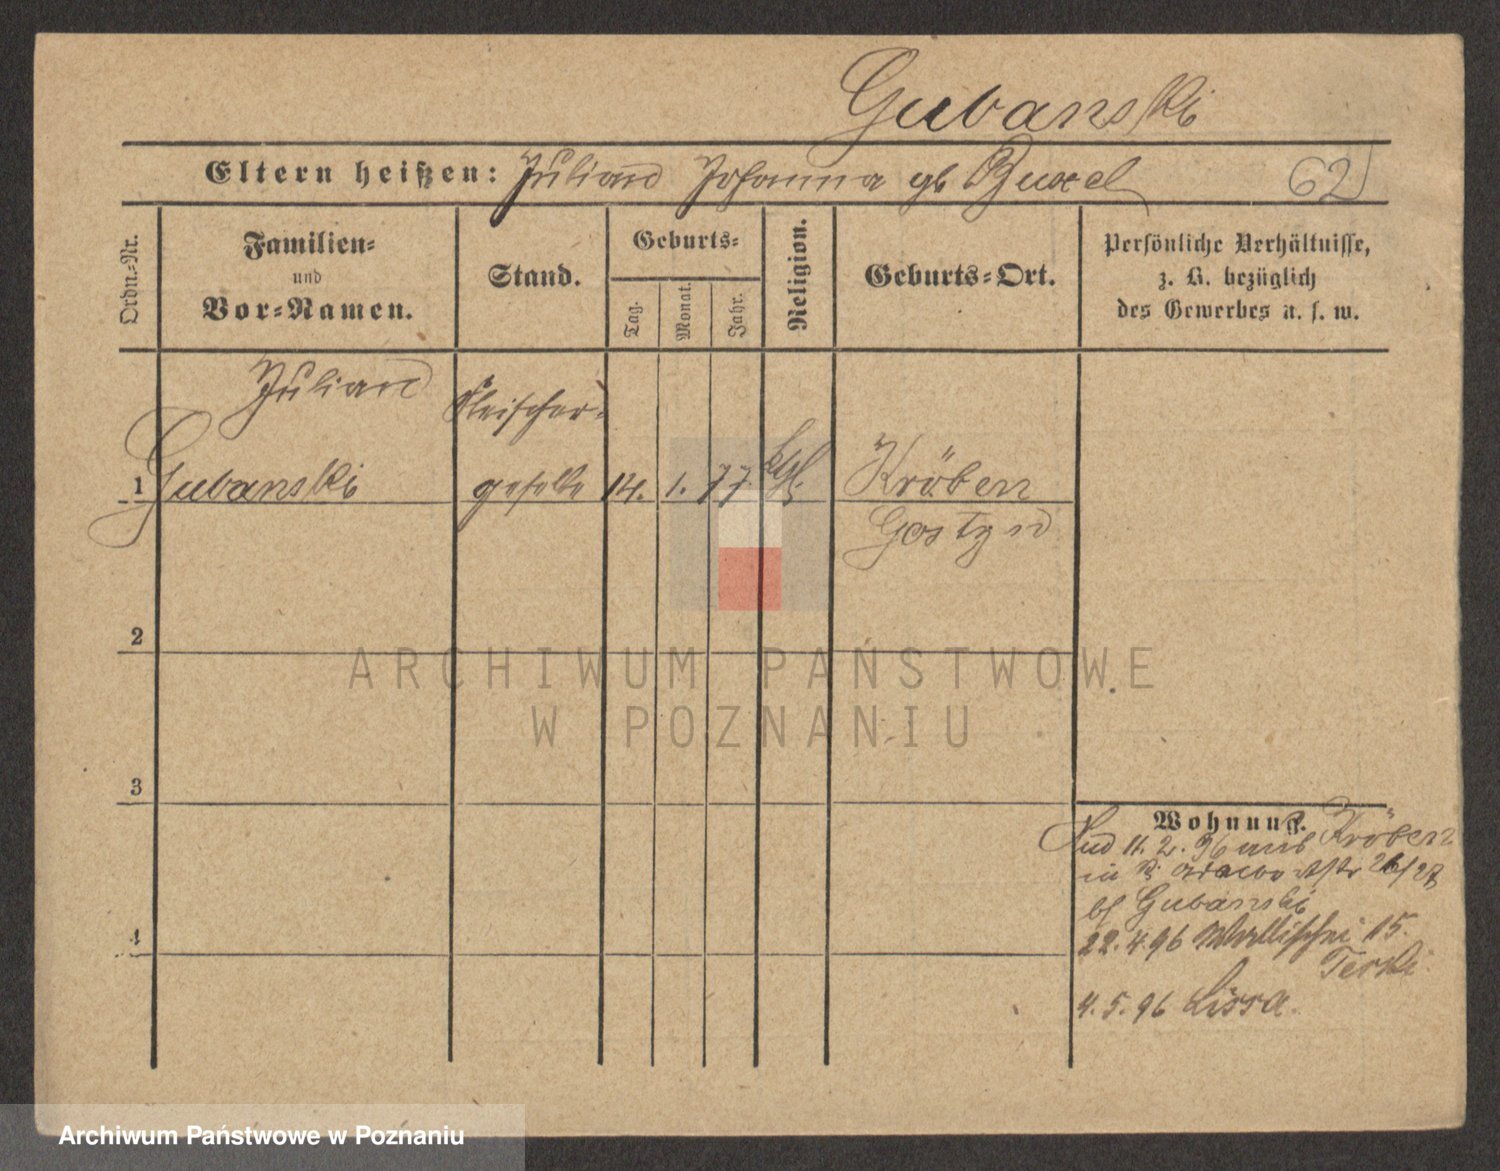 Gubanski
Eltern heißen: Julian Johanna gb 62
Ordn.-Nr.
Familien-
und
Vor-Namen.
Stand.
Geburts-
Tag.
Monat.
Jahr.
Religion.
Geburts-Ort.
Persönliche Verhältnisse,
z. B. bezüglich
des Gewerbes u. s. w.
Julian Fleischer-
1 Gubanski geselle 14. 1. 77. Kröben
Gostyn
2
3
4
Wohnung.
11. 2. 96 aus Kröben
in 26/27
bf Gubanski
22.4.96 Wallischei 15.
4.5.96 Lissa.
ARCHIWUM PAŃSTWOWE
W POZNANIU
Archiwum Państwowe w Poznaniu